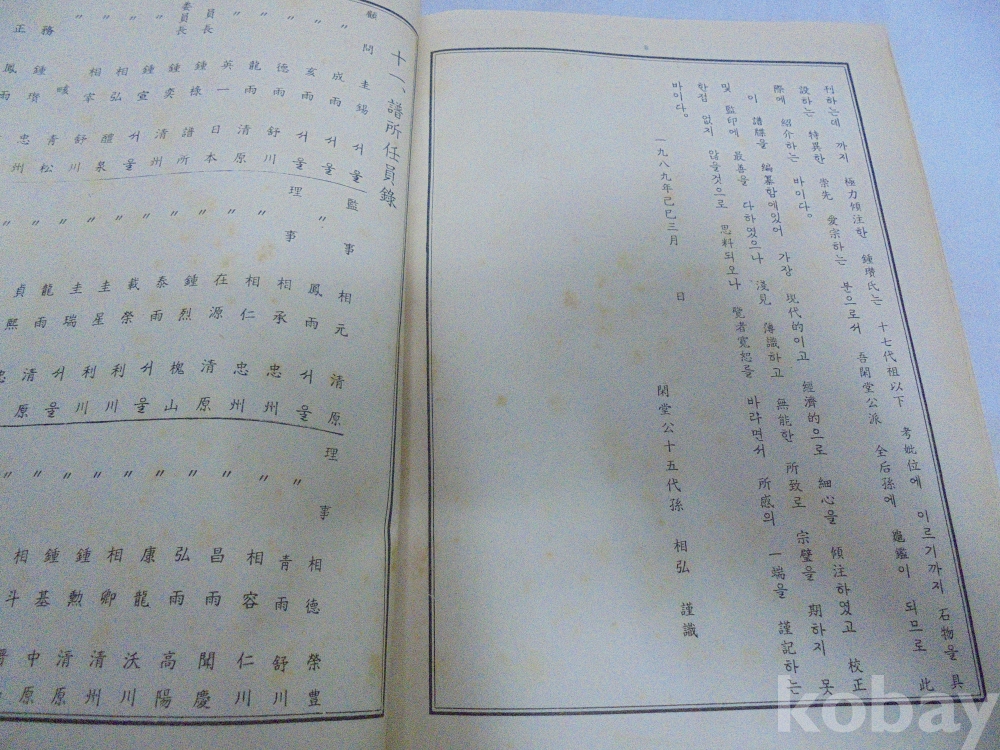 利하는데 까지 極力傾注한 鍾瓚氏는 十七代祖以下 考妣位에 이르기까지 石物을 具
設하는 特異한 崇先 愛宗하는 분으로서 吾閑堂公派 全后孫에 龜鑑이 되므로 此
際에 紹介하는 바이다。
이 譜牒을 編纂함에있어 가장 現代的이고 經濟的으로 細心을 傾注하였고 校正
및 監印에 最善을 다하였으나 淺見 薄識하고 無能한 所致로 宗璧을 期하지 못
한점 없지 않을것으로 思料되오나 覽者寬恕를 바라면서 所感의 一端을 謹記하는
바이다。
一九八九年己巳三月 日 閑堂公十五代孫 相弘 謹識
十一、譜所任員錄
顧問 圭錫 서울
〃 成雨 서울
〃 亥雨 서울
〃 德雨 舒川
〃 龍雨 清原
委員長 英一 日本
鍾祿 譜所
鍾奕 清州
鍾宣 서울
相弘 醴泉
相宰 舒川
監事 相元 清原
理事 鳳雨 서울
〃 相承 忠州
〃 相仁 忠州
〃 在源 清原
〃 鍾烈 槐山
〃 泰雨 서울
〃 載榮 利川
〃 圭星 利川
〃 圭瑞 서울
〃 龍雨 清原
理事 相德 榮豊
〃 青雨 舒川
〃 相容 仁川
〃 昌雨 聞慶
〃 弘雨 高陽
〃 康龍 沃川
〃 相卿 清州
〃 鍾勲 清原
〃 鍾基 中原
kobay